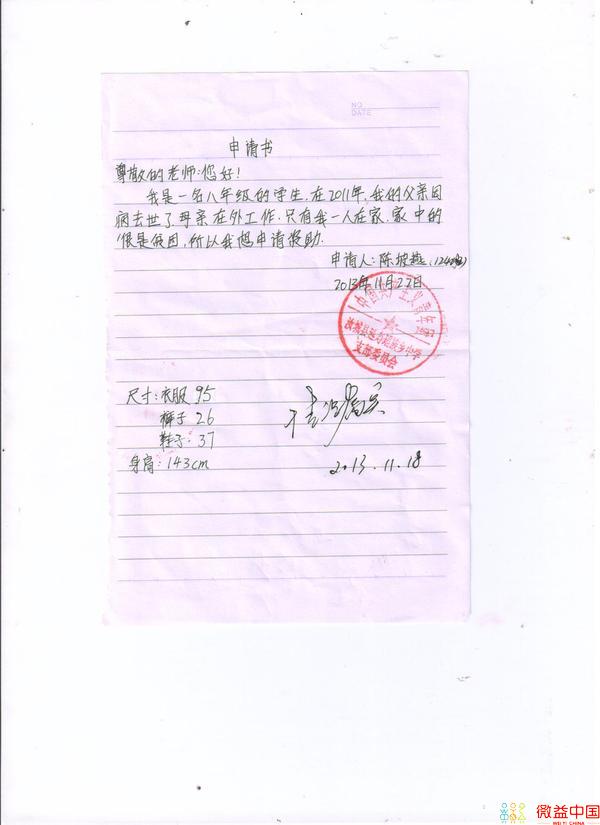 NO.
DATE
申请书
尊敬的老师:您好!
我是一名八年级的学生.在2011年,我的父亲因
病去世了.母亲在外工作.只有我一人在家.家中的
很是贫困,所以我想申请资助.
申请人:陈坡
2013年11月22日
中国共产主义青年
汝城县延寿瑶族乡中学
支部委员会
尺寸:衣服 95
裤子:26
鞋子:37
身高:143cm
2013.11.18
微益中国
WEI YI CHINA